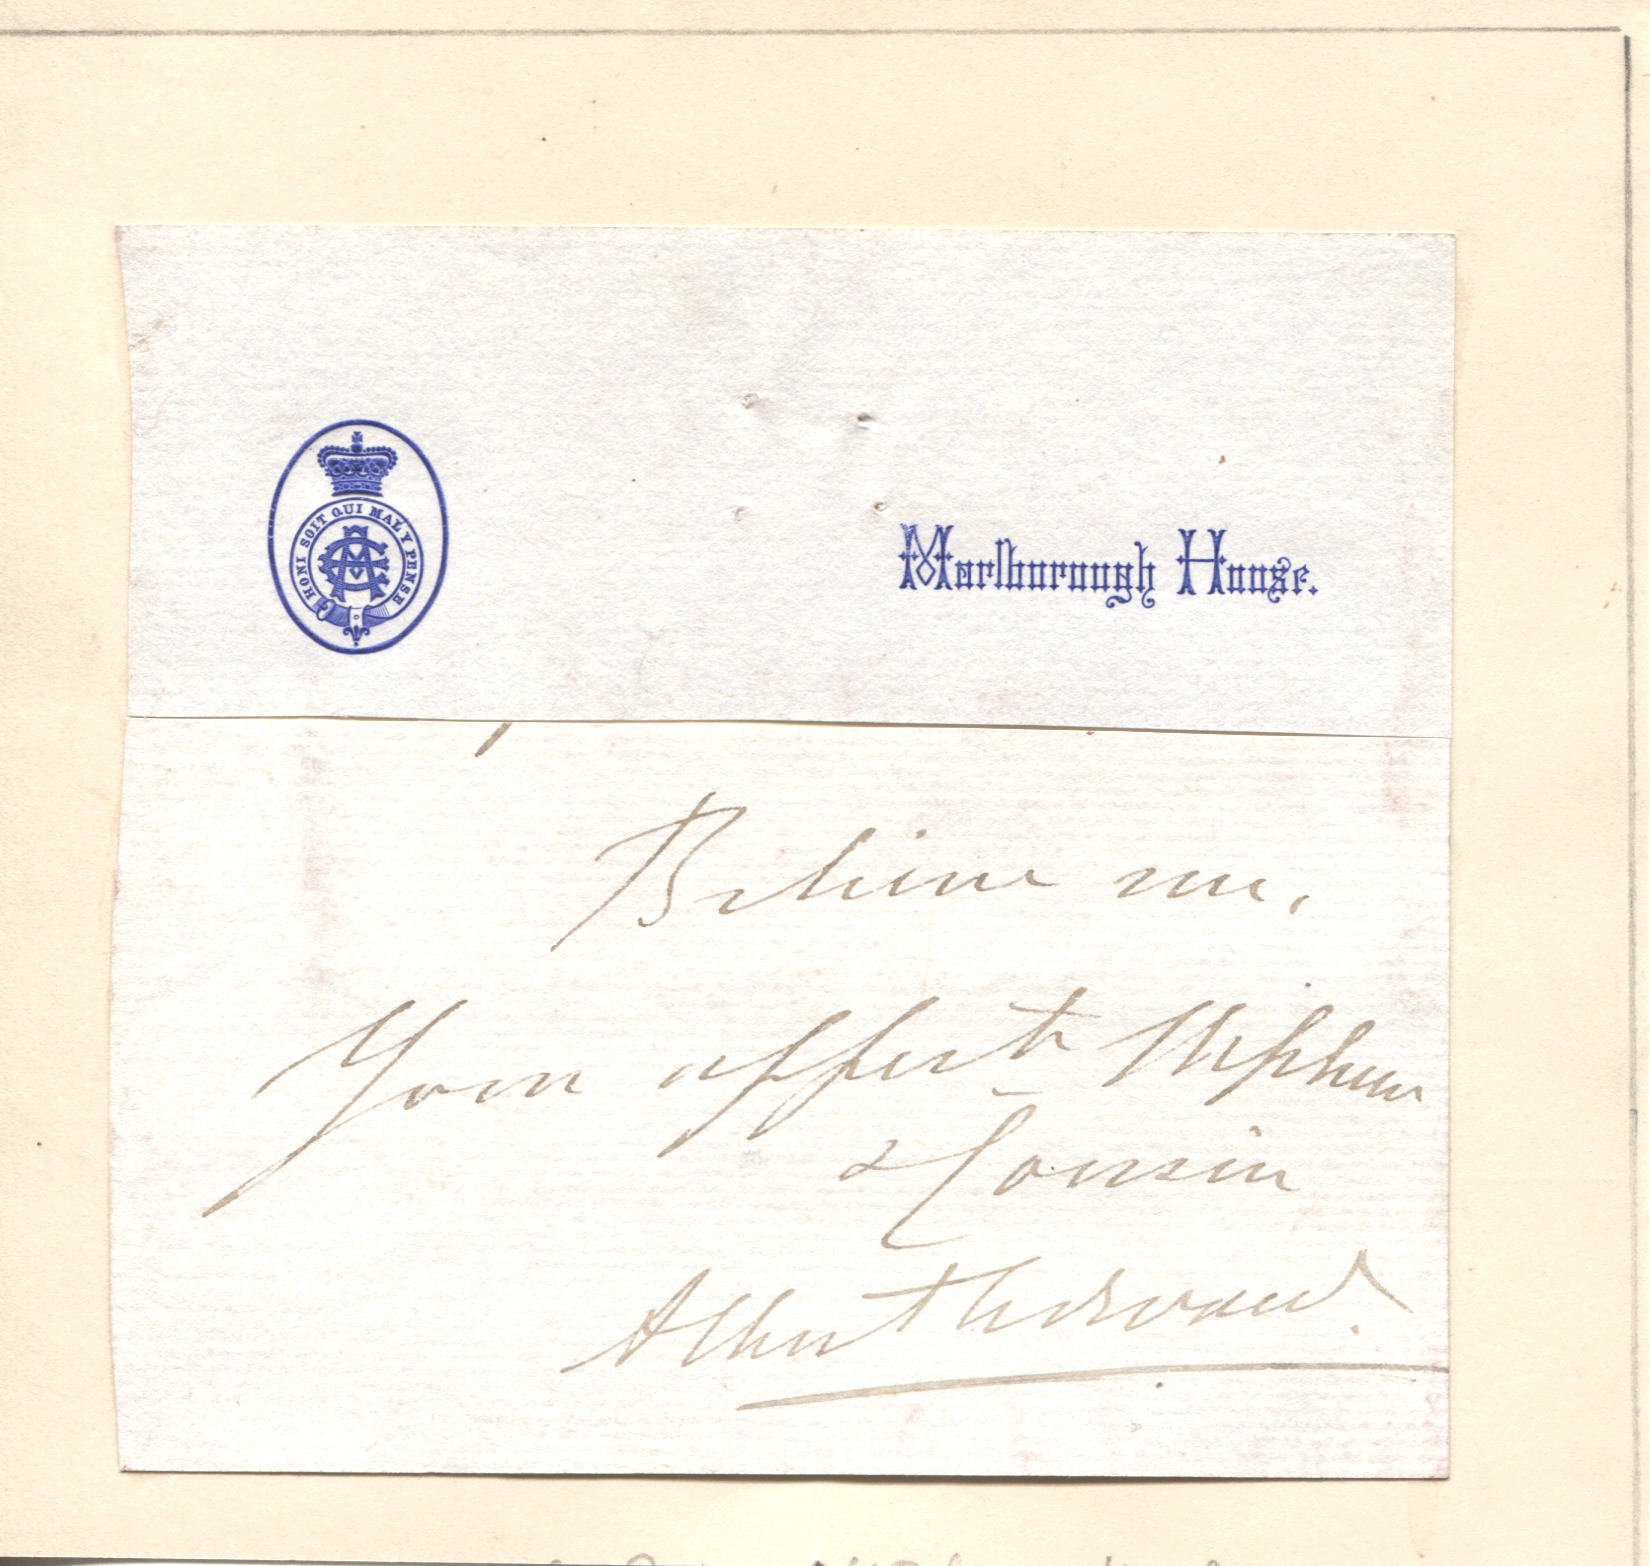 HONI SOIT QUI MAL Y PENSE
Marlborough House.
Believe me,
Your affect Nephew
& Cousin
Albert Edward.